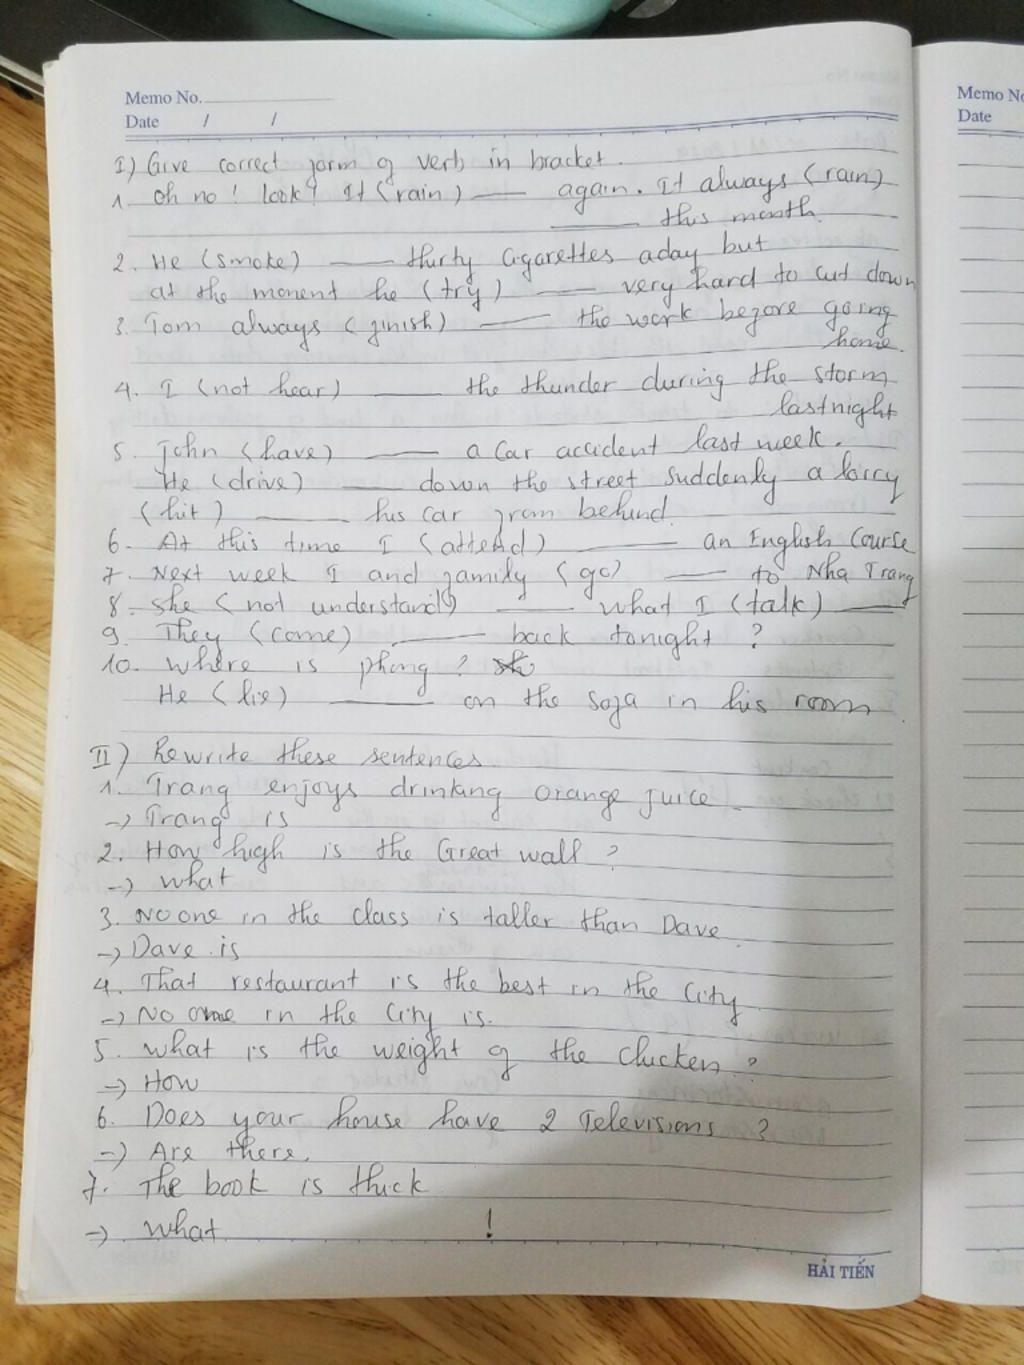 Memo No.
Date / /
I) Give correct form of verb in bracket.
1. Oh no! look! It (rain) ___ again. It always (rain)
___ this month
2. He (smoke) ___ thirty cigarettes aday but
at the moment he (try) ___ very hard to cut down
3. Tom always (finish) ___ the work before going
home.
4. I (not hear) ___ the thunder during the storm
lastnight
5. John (have) ___ a car accident last week.
He (drive) ___ down the street suddenly a lorry
(hit) ___ his car from behind.
6. At this time I (attend) ___ an English Course
7. Next week I and family (go) ___ to Nha Trang
8. She (not understand) ___ what I (talk) ___
9. They (come) ___ back tonight ?
10. Where is phong ?
He (lie) ___ on the sofa in his room
II) Rewrite these sentences
1. Trang enjoys drinking orange juice.
-> Trang is
2. How high is the Great wall ?
-> what
3. No one in the class is taller than Dave.
-> Dave is
4. That restaurant is the best in the city
-> No one in the city is.
5. what is the weight of the chicken ?
-> How
6. Does your house have 2 Televisions ?
-> Are there.
7. The book is thick
-> what !
HẢI TIẾN
Memo No
Date